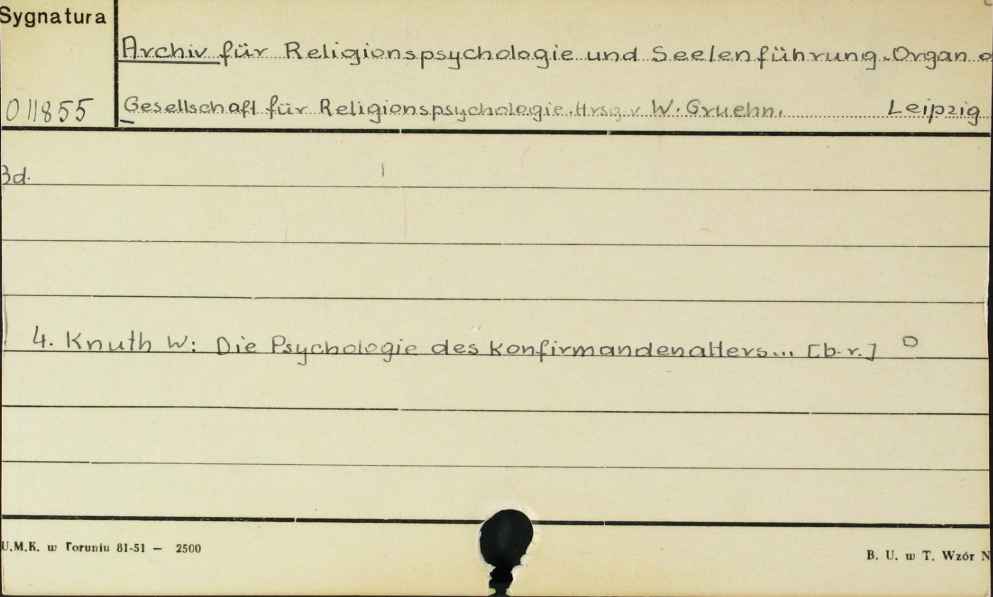 Sygnatura
Archiv für Religionspsychologie und Seelenführung. Organ
011855 Gesellschaft für Religionspsychologie. Hrsg. v W. Gruehn. Leipzig
Bd.
4. Knuth W: Die Psychologie des Konfirmandenalters... [b.r.]
U.M.K. w Toruniu 81-51 — 2500
B. U. w T. Wzór N